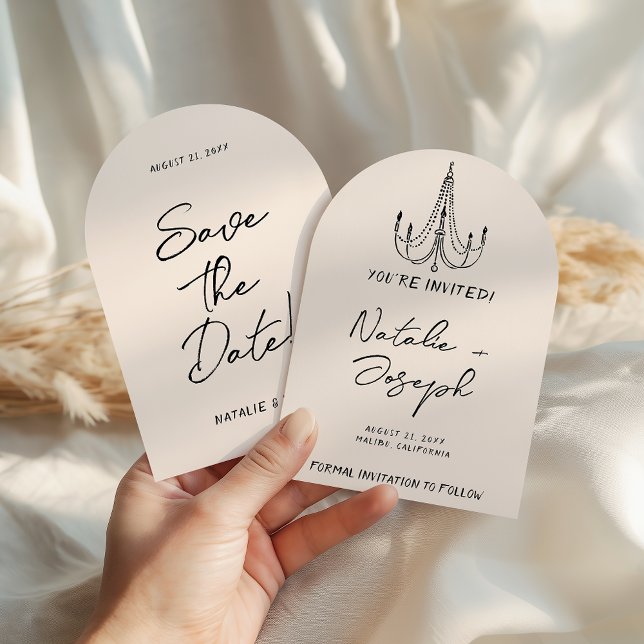 AUGUST 21, 20XX
Save
the
Date!
NATALIE &
YOU'RE INVITED!
Natalie +
Joseph
AUGUST 21, 20XX
MALIBU, CALIFORNIA
FORMAL INVITATION TO FOLLOW